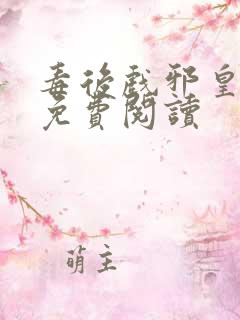 毒後戲邪皇
免費閱讀
萌主